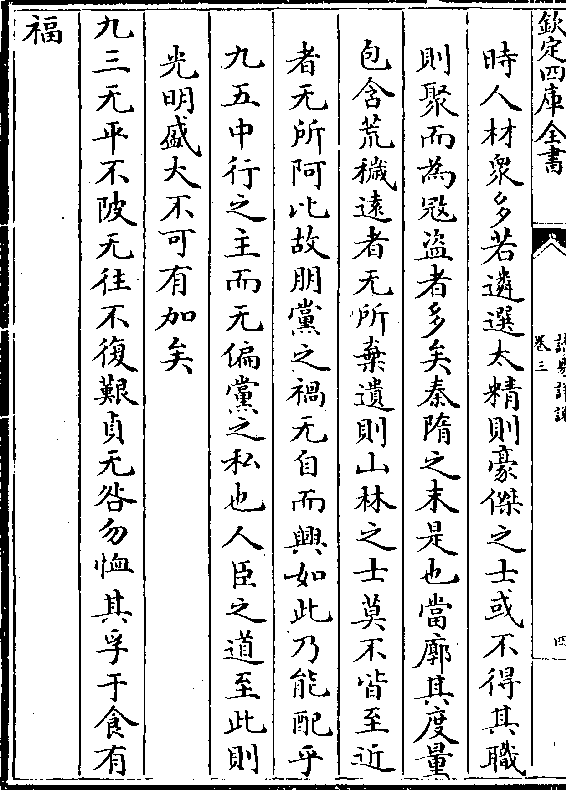 欽定四庫全書
讀易詳說
卷三
四
時人材衆多若遴選太精則豪傑之士或不得其職
則聚而為冦盗者多矣秦隋之末是也當廓其度量
包含荒穢逺者无所棄遺則山林之士莫不皆至近
者无所阿比故朋黨之禍无自而興如此乃能配乎
九五中行之主而无偏黨之私也人臣之道至此則
光明盛大不可有加矣
九三无平不陂无往不復艱貞无咎勿恤其孚于食有
福